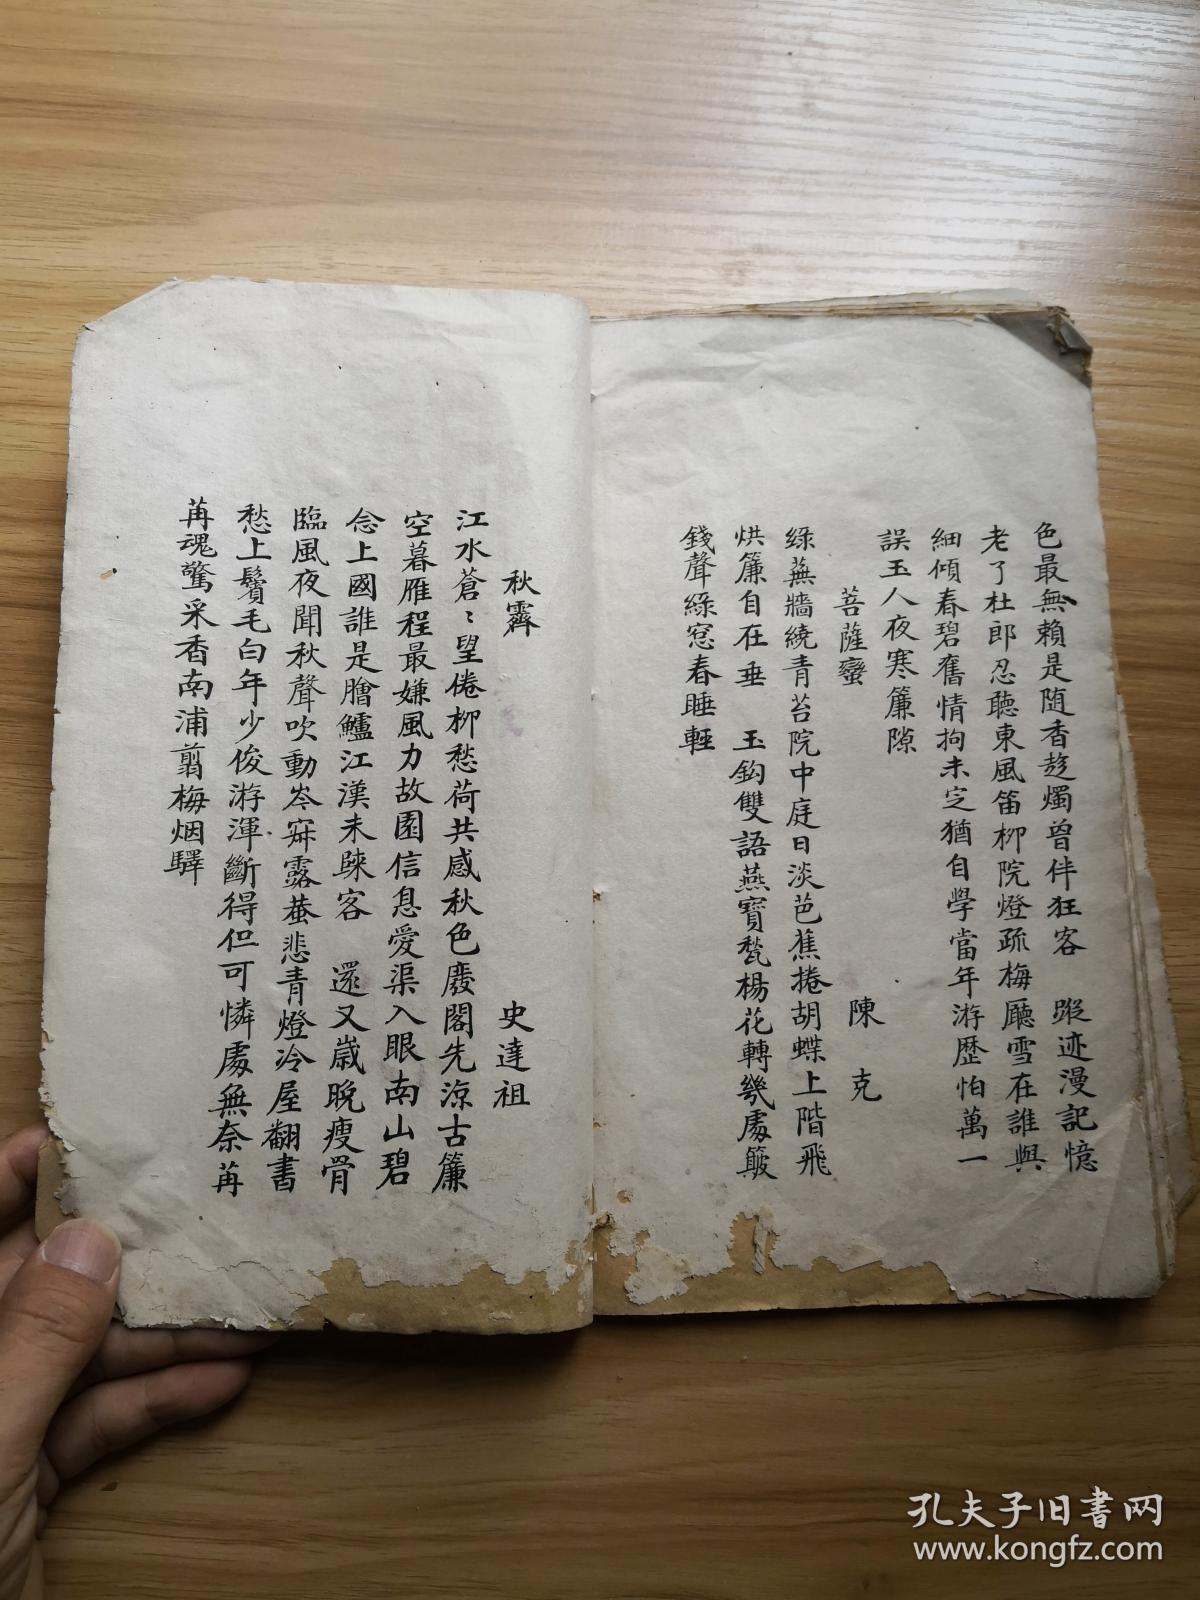 色最無賴是随香趂燭曾伴狂客　蹤迹漫記憶
老了杜郎忍聽東風笛柳院燈疏梅廳雪在誰與
細傾春碧舊情拘未定猶自學當年游歷怕萬一
誤玉人夜寒簾隙
菩薩蠻　陳克
綠蕪牆繞青苔院中庭日淡芭蕉捲胡蝶上階飛
烘簾自在垂　玉鈎雙語燕寳甃楊花轉幾處簸
錢聲綠窓春睡輕
秋霽　史達祖
江水蒼〻望倦柳愁荷共感秋色廢閣先涼古簾
空暮雁程最嫌風力故園信息愛渠入眼南山碧
念上國誰是膾鱸江漢未歸客　還又歲晚瘦骨
臨風夜聞秋聲吹動岑寂露蛬悲青燈冷屋翻書
愁上鬢毛白年少俊游渾斷得但可憐處無奈苒
苒魂驚采香南浦翦梅烟驛
孔夫子旧书网
www.kongfz.com